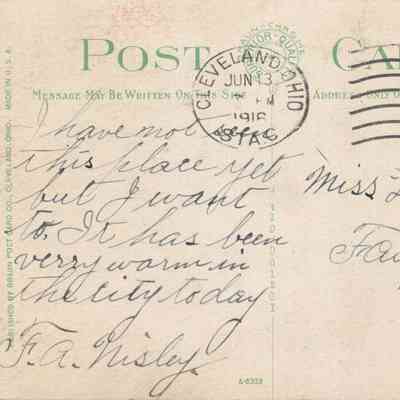 POST CA
MESSAGE MAY BE WRITTEN ON THIS SIDE
ADDRESS ONLY O
CLEVELAND, OHIO
JUN 13
PM
1916
STA C
I have not seen
this place yet
but I want
to. It has been
verry warm in
the city today
F.A. Nisley.
Miss
Fa
PUBLISHED BY BRAUN POST CARD CO., CLEVELAND, OHIO. MADE IN U.S.A.
A-6329